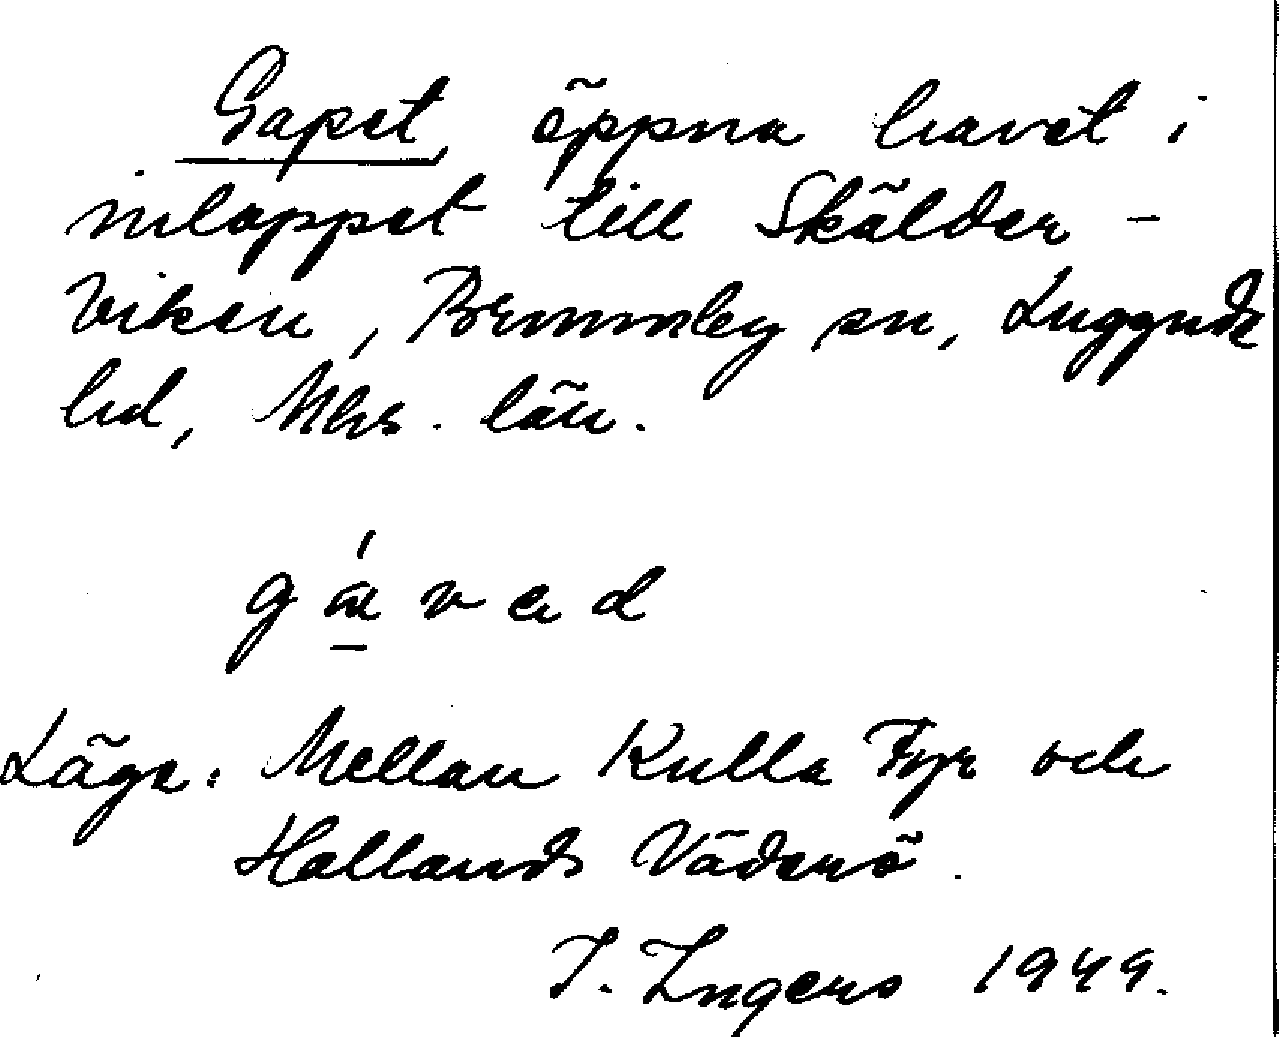 Gapet, öppna havet i
inloppet till Skälder-
viken, Brunnby sn, Luggude
hd, Mhs. län.
gávad
Läge: Mellan Kulla Fyr och
Hallands Väderö.
I. Ingers 1949.